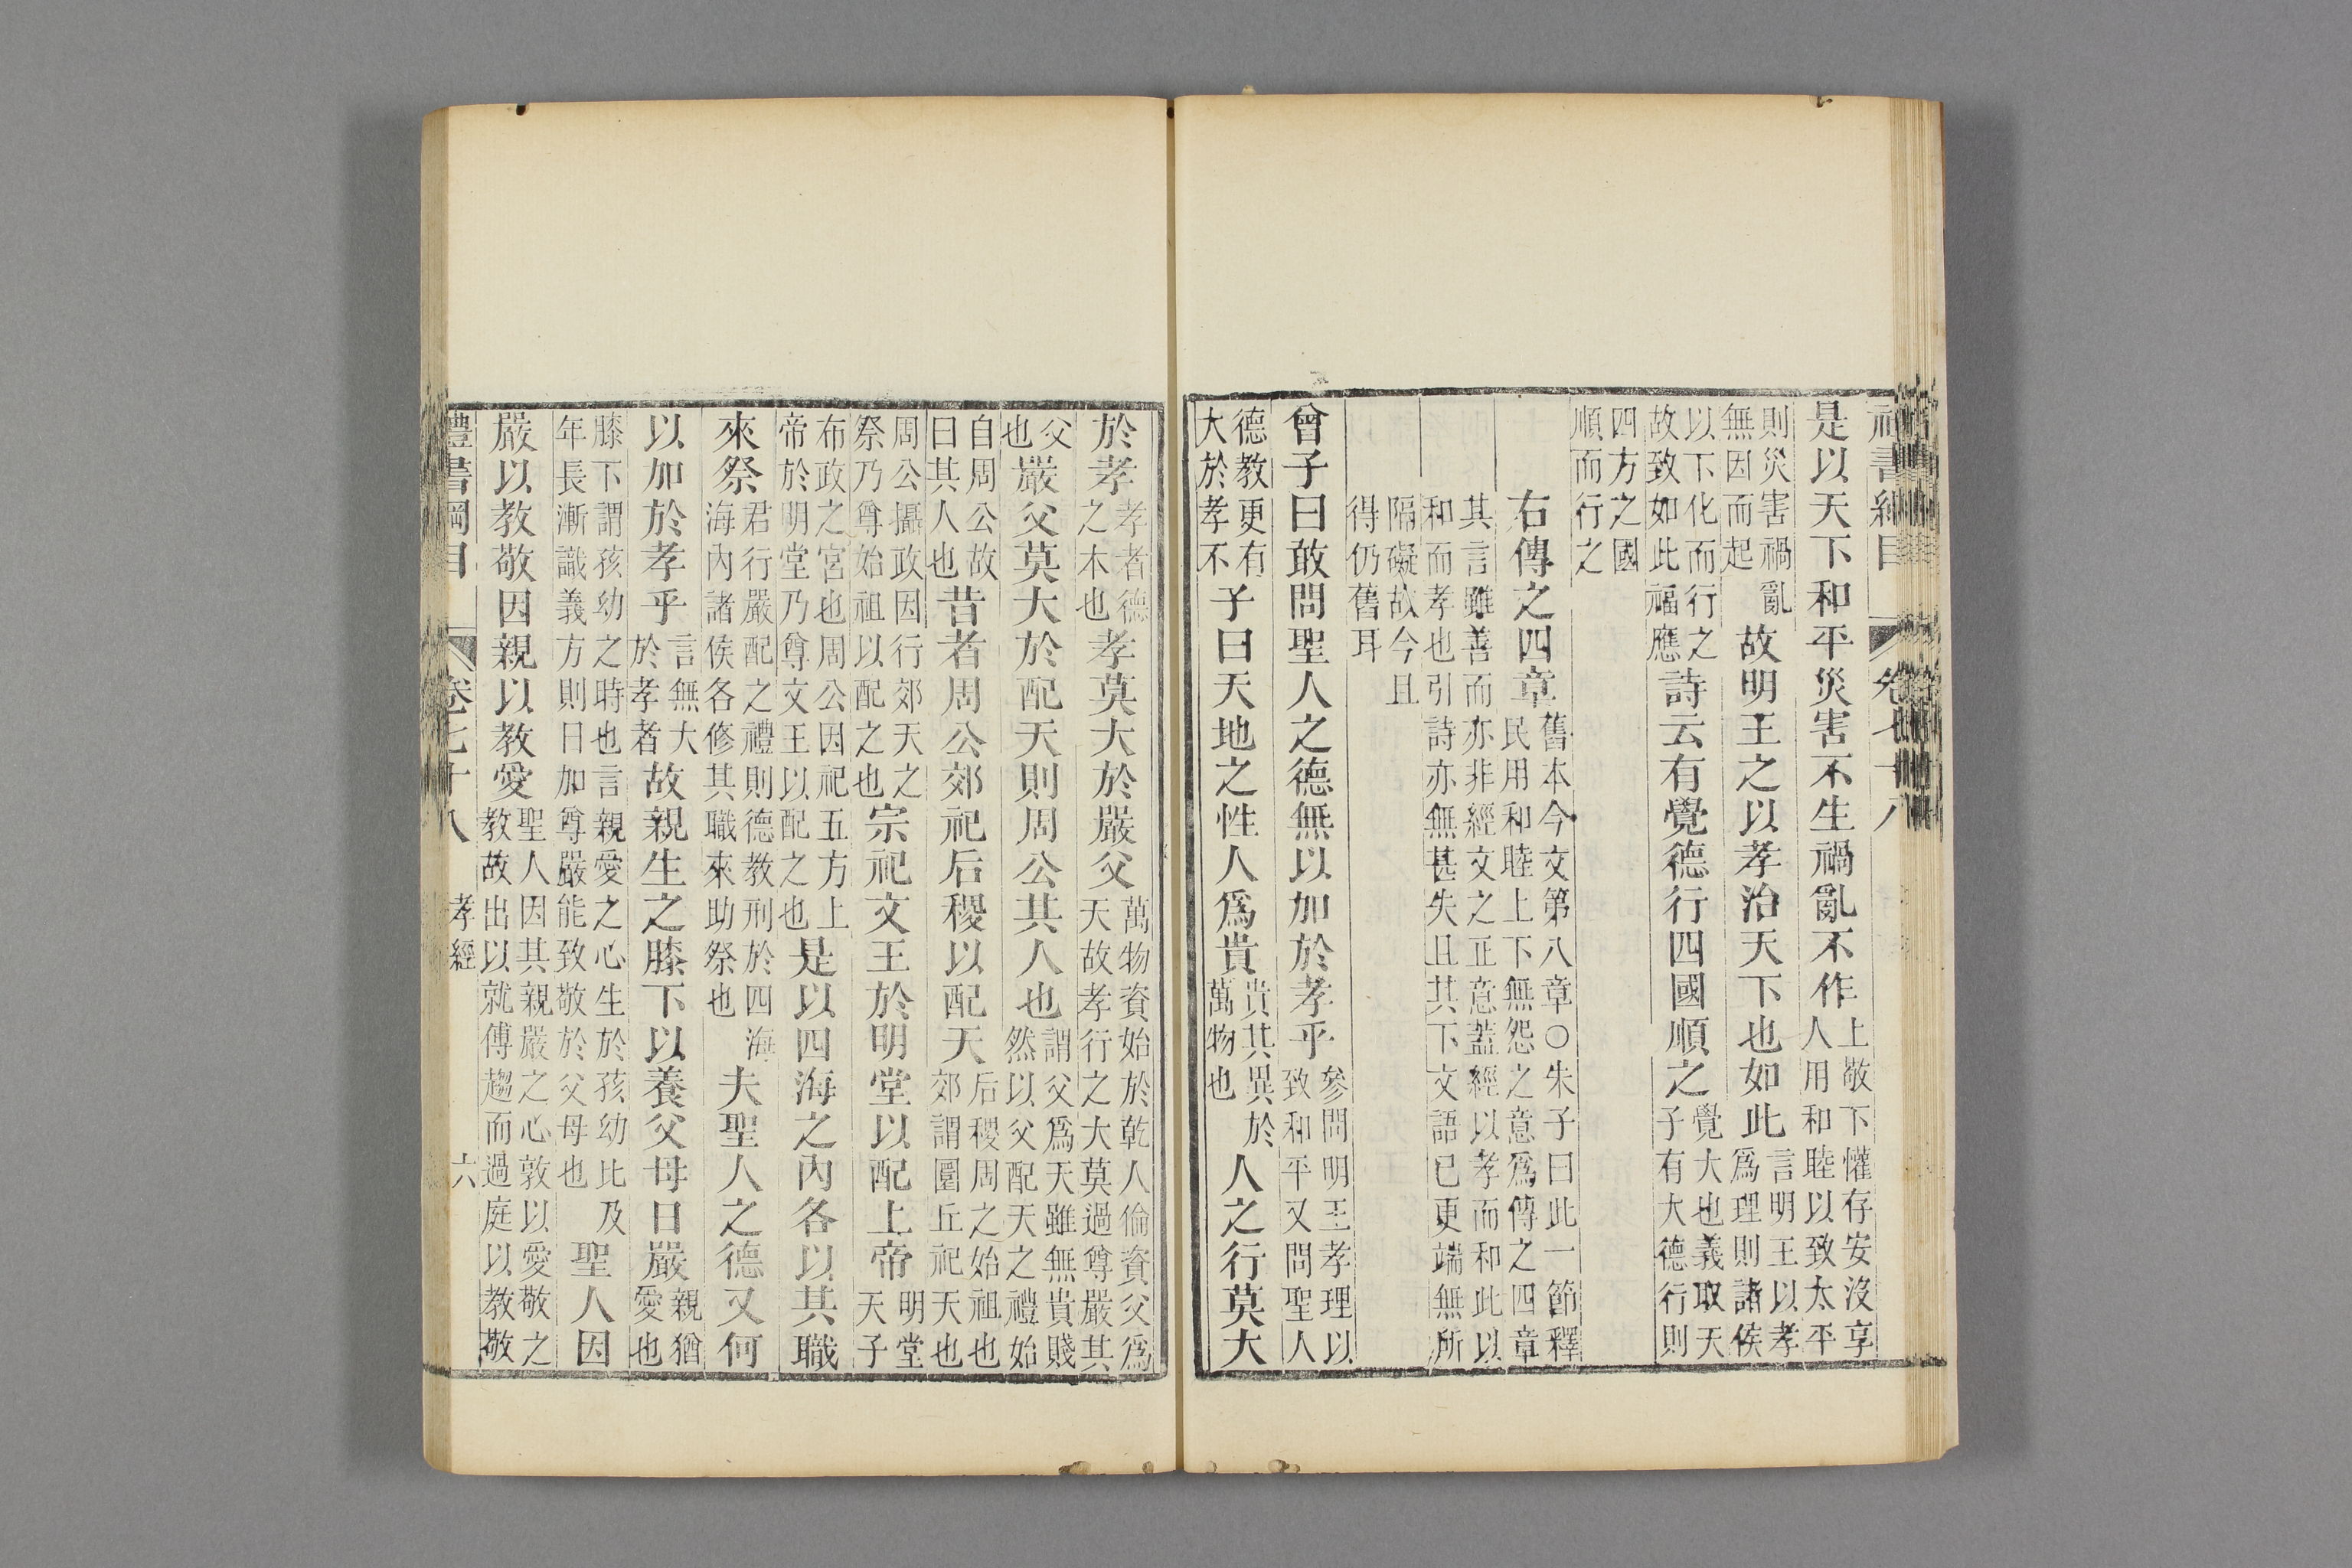 禮書綱目 卷七十八
是以天下和平災害不生禍亂不作上敬下懽存安沒享人用和睦以致太平
則災害禍亂無因而起故明王之以孝治天下也如此言明王以孝爲理則諸侯
以下化而行之故致如此福應詩云有覺德行四國順之覺大也義取天子有大德行則
四方之國順而行之
右傳之四章舊本今文第八章○朱子曰此一節釋民用和睦上下無怨之意爲傳之四章
其言雖善而亦非經文之正意蓋經以孝而和此以和而孝也引詩亦無甚失且其下文語已更端無所
隔礙故今且得仍舊耳
曾子曰敢問聖人之德無以加於孝乎參問明王孝理以致和平又問聖人
德教更有大於孝不子曰天地之性人爲貴貴其異於萬物也人之行莫大
於孝孝者德之本也孝莫大於嚴父萬物資始於乾人倫資父爲天故孝行之大莫過尊嚴其
父也嚴父莫大於配天則周公其人也謂父爲天雖無貴賤然以父配天之禮始
自周公故曰其人也昔者周公郊祀后稷以配天后稷周之始祖也郊謂圜丘祀天也
周公攝政因行郊天之祭乃尊始祖以配之也宗祀文王於明堂以配上帝明堂天子
布政之宮也周公因祀五方上帝於明堂乃尊文王以配之也是以四海之內各以其職
來祭君行嚴配之禮則德教刑於四海海內諸侯各修其職來助祭也夫聖人之德又何
以加於孝乎言無大於孝者故親生之膝下以養父母日嚴親猶愛也
膝下謂孩幼之時也言親愛之心生於孩幼比及年長漸識義方則日加尊嚴能致敬於父母也聖人因
嚴以教敬因親以教愛聖人因其親嚴之心敦以愛敬之教故出以就傅趨而過庭以教敬
禮書綱目 卷七十八 孝經 六